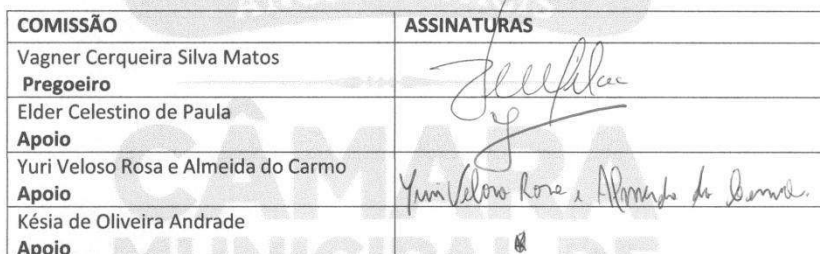 COMISSÃO ASSINATURAS
Vagner Cerqueira Silva Matos
Pregoeiro
Elder Celestino de Paula
Apoio
Yuri Veloso Rosa e Almeida do Carmo Yuri Veloso Rosa e Almeida do Carmo.
Apoio
Késia de Oliveira Andrade
Apoio
CÂMARA
MUNICIPAL DE